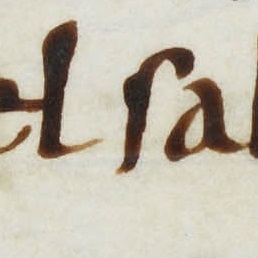 el sal